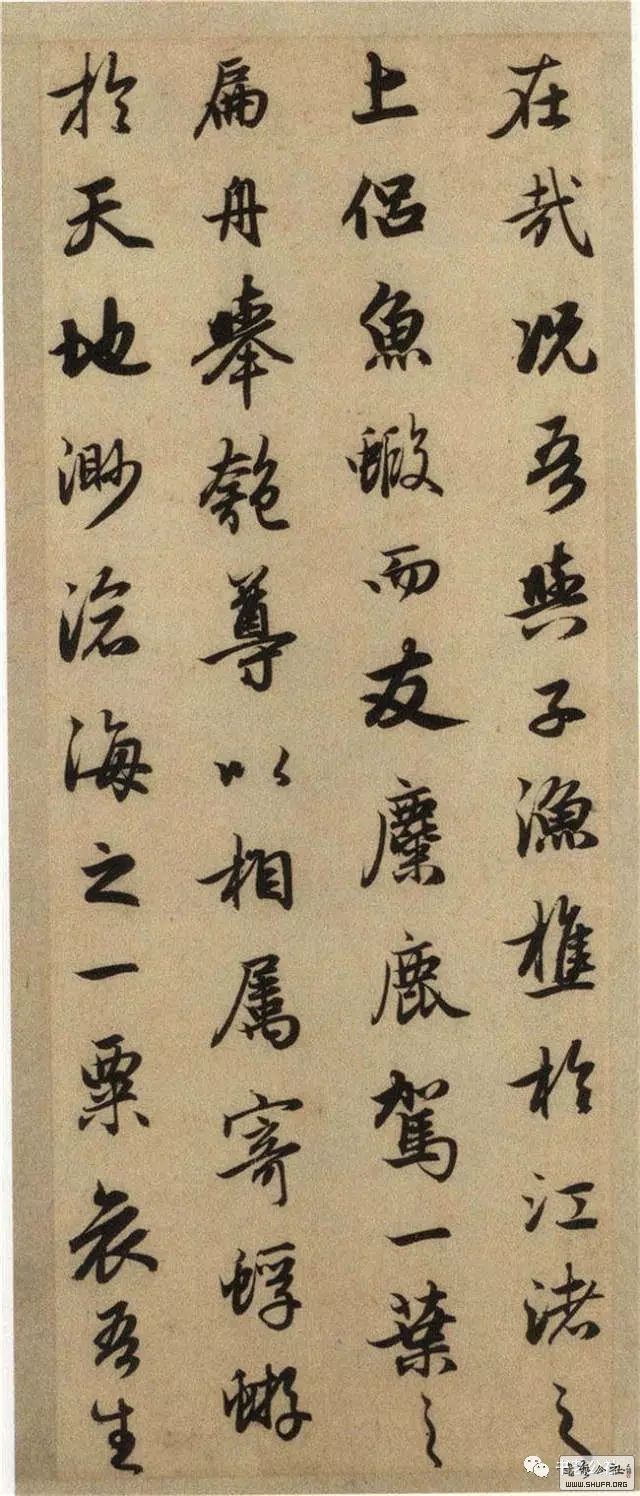 在哉况吾與子漁樵於江渚之
上侣魚蝦而友麋鹿駕一葉之
扁舟舉匏尊以相属寄蜉蝣
於天地渺滄海之一粟哀吾生
WWW.SHUFA.ORG